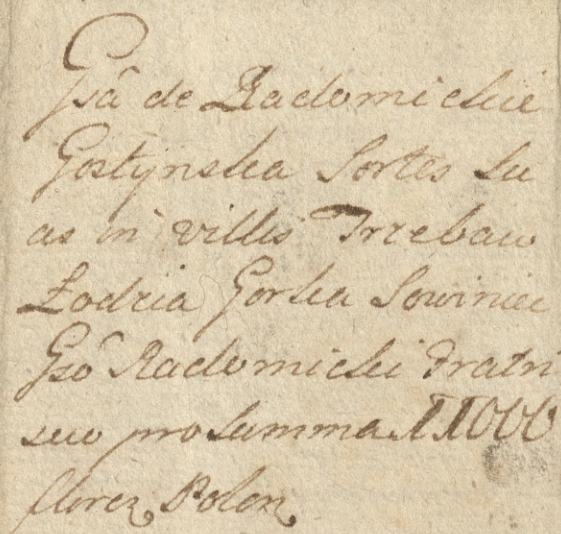 Gsâ de Radomickie
Gostynska Sortes Su
as in villis Trzebaw
Łodzia Gorka Sowiniec
Gsô Radomicki Fratri
suo pro Summa 11000
floren Polon